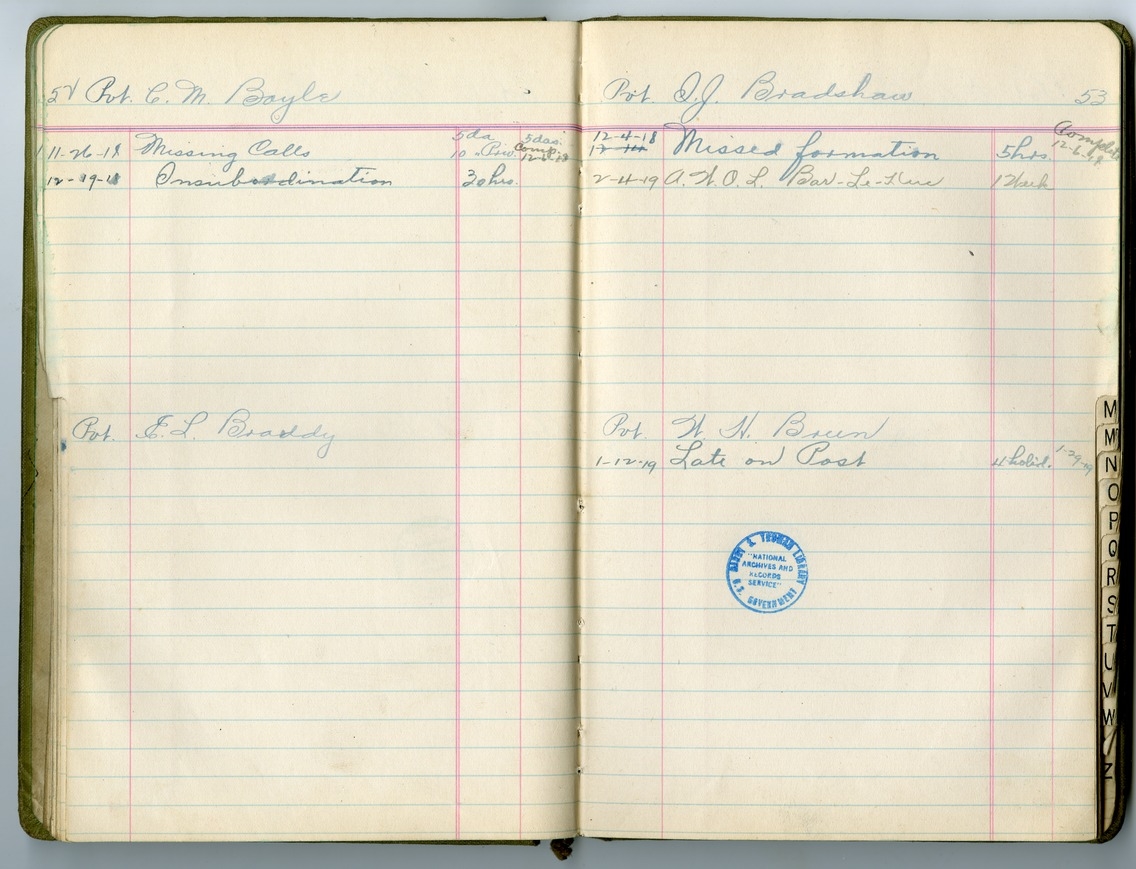 52 Pvt. C. M. Boyle
11-26-18 Missing Calls 5 da 5 das.
10 " Comp.
12-19-18 Insubordination 30 hrs.
Pvt. E. L. Braddy
Pvt. O. J. Bradshaw 53
12-4-18 Missed formation 5 hrs. Complete
12-6-18
2-4-19 A. W. O. L. Bar-Le-Duc 1 Week
Pvt. W. H. Breen
1-12-19 Late on Post 4 holid. 1-29-19
HARRY S. TRUMAN LIBRARY
"NATIONAL
ARCHIVES AND
RECORDS
SERVICE"
U.S. GOVERNMENT
M
M
N
O
P
Q
R
S
T
U
V
W
Z